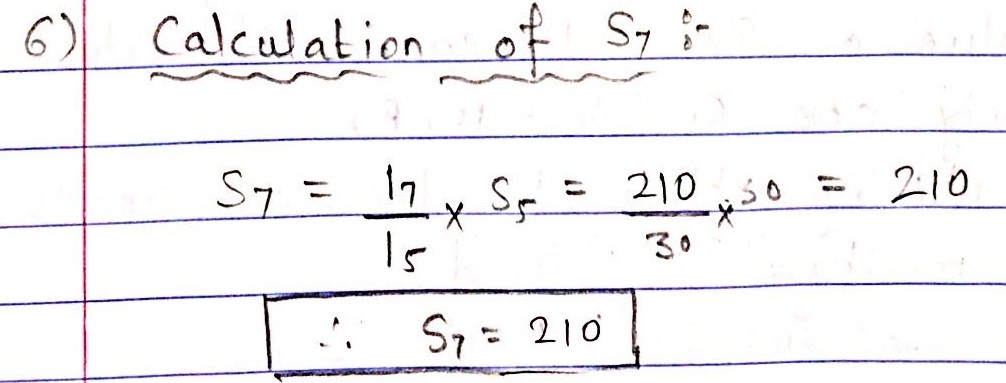 6) Calculation of S7 :-
S7 = l7/l5 x S5 = 210/30 x 30 = 210
∴ S7 = 210